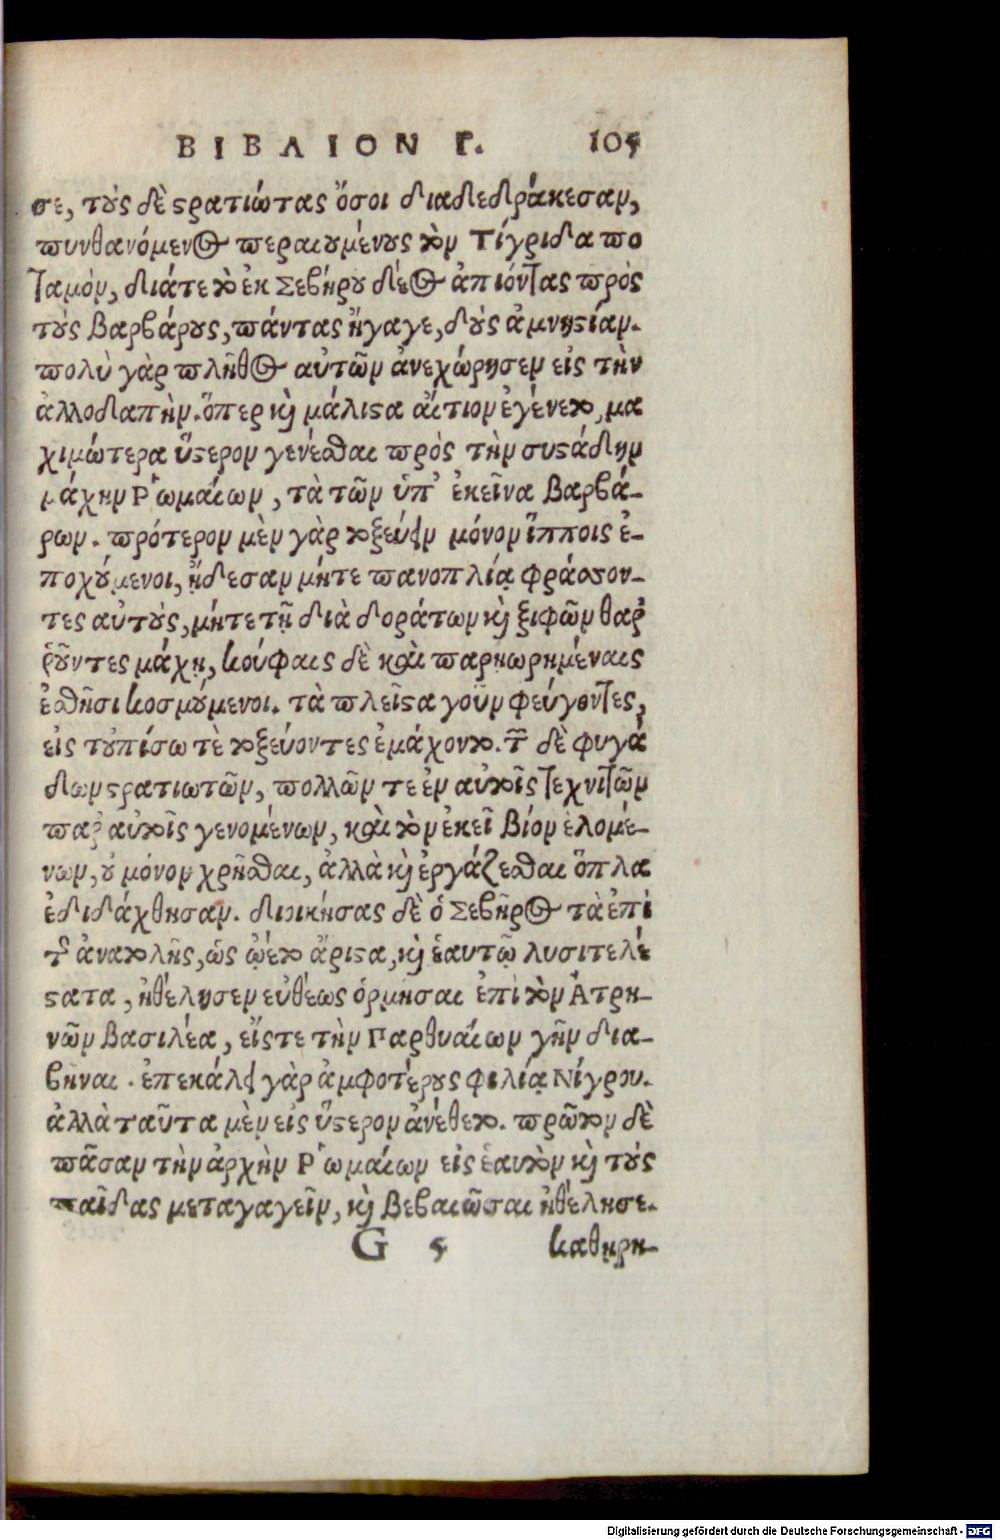 ΒΙΒΛΙΟΝ Γ. 105
σε, τοὺς δὲ στρατιώτας ὅσοι διαδεδράκεσαν,
πυνθανόμενος περαιουμένους τὸν Τίγριδα πο
ταμὸν, διάτε τὸ ἐκ Σεβήρου δέος ἀπιόντας πρὸς
τοὺς Βαρβάρους, πάντας ἤγαγε, δοὺς ἀμνηστίαν.
πολὺ γὰρ πλῆθος αὐτῶν ἀνεχώρησεν εἰς τὴν
ἀλλοδαπὴν. ὅπερ καὶ μάλιστα αἴτιον ἐγένετο, μα
χιμώτερα ὕστερον γενέσθαι πρὸς τὴν συστάδην
μάχην Ῥωμαίων, τὰ τῶν ὑπ' ἐκεῖνα Βαρβά-
ρων. πρότερον μὲν γὰρ τοξεύειν μόνον ἵπποις ἐ-
ποχούμενοι, ᾔδεσαν μήτε πανοπλίᾳ φράσσον-
τες αὑτοὺς, μήτε τῇ διὰ δοράτων καὶ ξιφῶν θαρ
ῥοῦντες μάχῃ, κούφαις δὲ καὶ παρῃωρημέναις
ἐσθῆσι κοσμούμενοι. τὰ πλεῖστα γοῦν φεύγοντες,
εἰς τοὐπίσω τὲ τοξεύοντες ἐμάχοντο. τῶν δὲ φυγά
δων στρατιωτῶν, πολλῶν τε ἐν αὐτοῖς τεχνιτῶν
παρ' αὐτοῖς γενομένων, καὶ τὸν ἐκεῖ βίον ἑλομέ-
νων, οὐ μόνον χρῆσθαι, ἀλλὰ καὶ ἐργάζεσθαι ὅπλα
ἐδιδάχθησαν. διοικήσας δὲ ὁ Σεβῆρος τὰ ἐπὶ
τῆς ἀνατολῆς, ὡς ᾤετο ἄριστα, καὶ ἑαυτῷ λυσιτελέ
στατα, ἠθέλησεν εὐθέως ὁρμῆσαι ἐπὶ τὸν Ἀτρη-
νῶν βασιλέα, εἴς τε τὴν Παρθυαίων γῆν δια-
βῆναι. ἐπεκάλει γὰρ ἀμφοτέρους φιλίᾳ Νίγρου.
ἀλλὰ ταῦτα μὲν εἰς ὕστερον ἀνέθετο. πρῶτον δὲ
πᾶσαν τὴν ἀρχὴν Ῥωμαίων εἰς ἑαυτὸν καὶ τοὺς
παῖδας μεταγαγεῖν, καὶ βεβαιῶσαι ἠθέλησε.
G 5 καθῃρη-
Digitalisierung gefördert durch die Deutsche Forschungsgemeinschaft - DFG